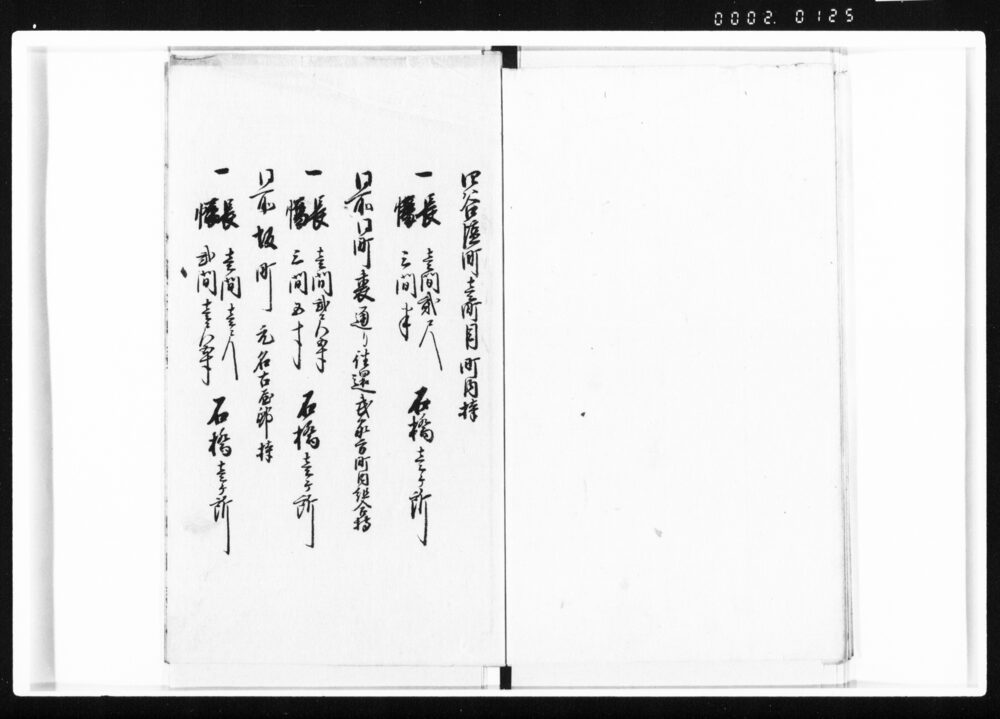 0002. 0125
四谷塩町壱町目町内持
一 長 壱間弐尺
幅 三間半 石橋壱ヶ所
同所同町裏通り往還武家方町内組合持
一 長 壱間弐尺半
幅 三間五寸 石橋壱ヶ所
同所坂町 元名古屋邸持
一 長 壱間壱尺
幅 弐間壱尺半 石橋壱ヶ所